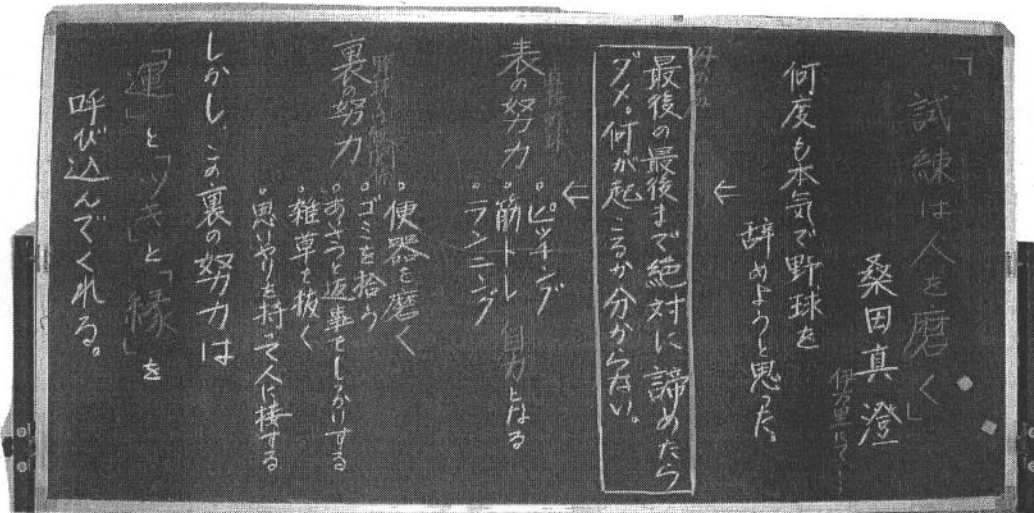 「試練は人を磨く」
桑田真澄
伊万里にて
何度も本気で野球を
辞めようと思った。
←
最後の最後まで絶対に諦めたら
ダメ。何が起こるか分からない。
←
表の努力
・ピッチング
・筋トレ
・ランニング
自力となる
裏の努力
・便器を磨く
・ゴミを拾う
・あいさつと返事をしっかりする
・雑草を抜く
・思いやりを持って人に接する
しかし、この裏の努力は
「運」と「ツキ」と「縁」を
呼び込んでくれる。